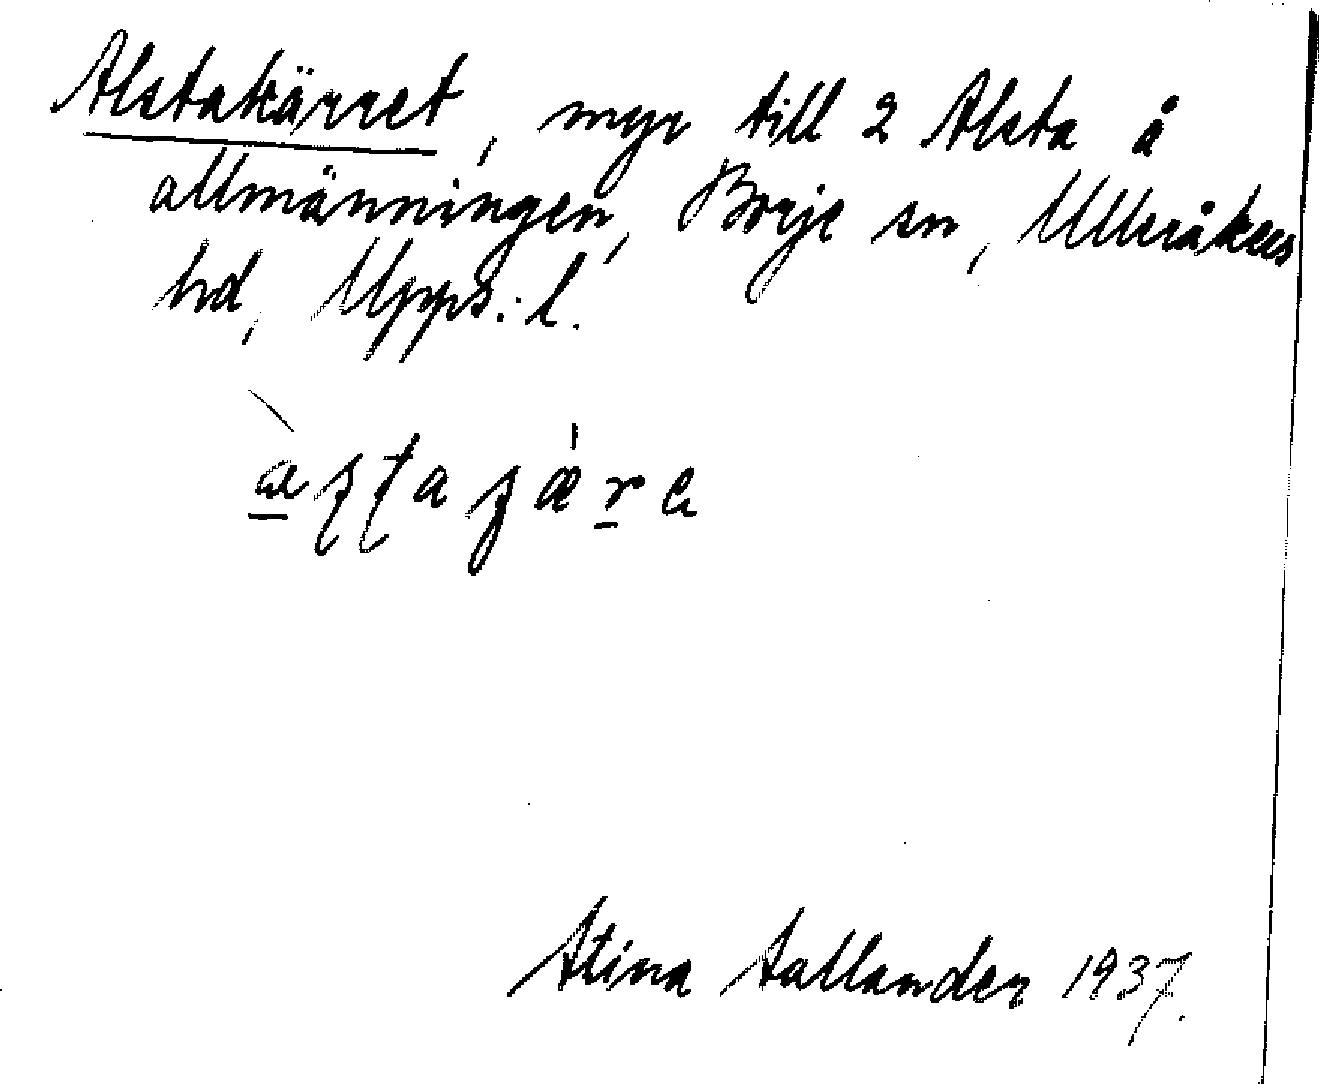 Alstakärret, myr till 2 Alsta å
allmänningen, Börje sn, Ulleråkers
hd, Upps. l.
Stina Sallander 1937.